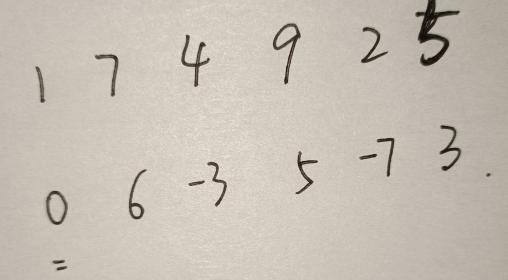 1 7 4 9 2 5
0 6 -3 5 -7 3.
=